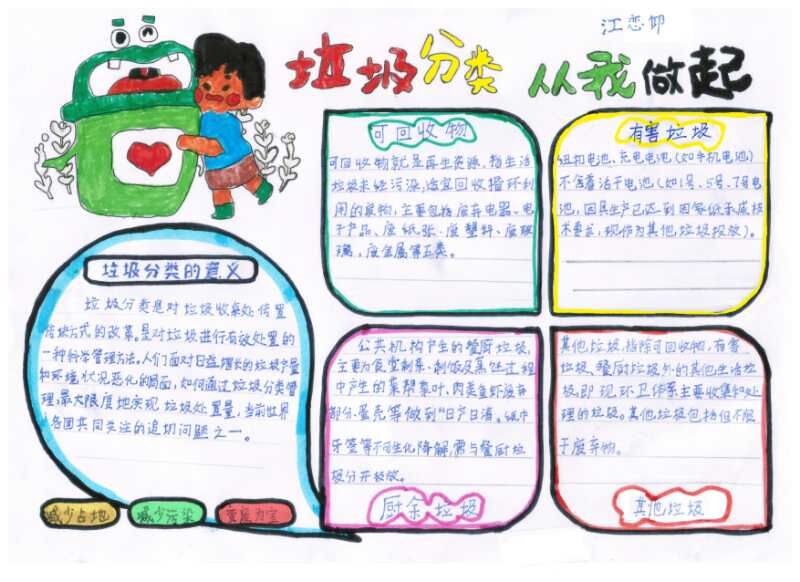 江恋
垃圾分类 从我做起
可回收物
可回收物就是再生资源，指生活
垃圾未经污染，适宜回收循环利
用的废物，主要包括废弃电器、电
子产品、废纸张、废塑料、废玻
璃、废金属等五类。
有害垃圾
纽扣电池、充电电池(如手机电池)
不含普活干电池(如1号、5号、7号电
池，因其生产已达到国家低汞或技
术要求，现作为其他垃圾投放)。
垃圾分类的意义
垃圾分类是对垃圾收集处传置
方式的改革。是对垃圾进行有效处置的
一种科学管理方法。人们面对日益增长的垃圾产量
和环境状况恶化的局面，如何通过垃圾分类管
理，最大限度地实现垃圾处置量，当前世界
各国共同关注的迫切问题之一。
减少占地
减少污染
变废为宝
公共机构产生的餐厨垃圾，
主要为食堂制菜、制饭及烹饪过程
中产生的菜帮菜叶、肉类鱼虾废弃
部分、蛋壳等做到"日产日清。纸巾
牙签等不可生化降解，需与餐厨垃
圾分开投放。
厨余垃圾
其他垃圾，指除可回收物，有害
垃圾、餐厨垃圾外的其他生活垃
圾。即现环卫体系主要收集和处
理的垃圾。其他垃圾包括但不限
于废弃物。
其他垃圾